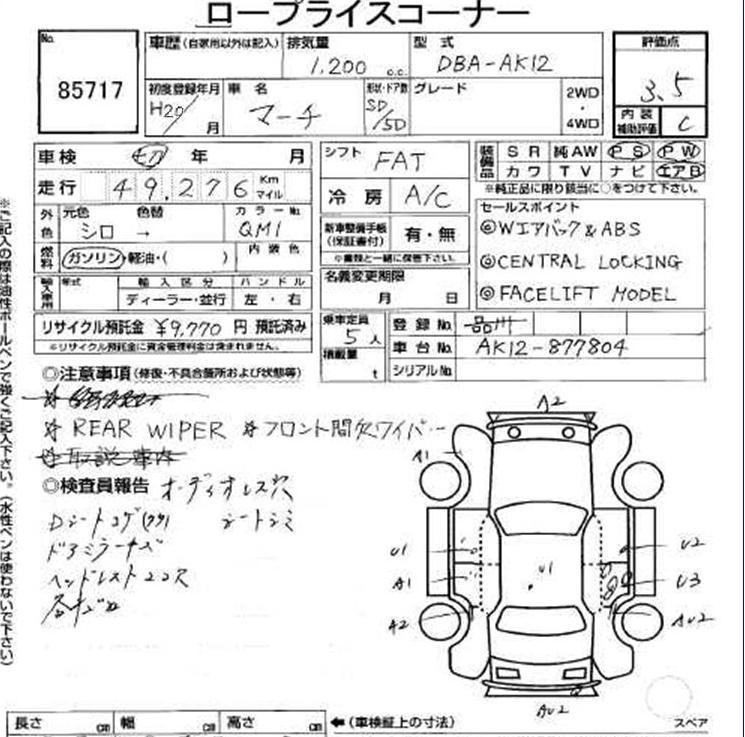 ロープライスコーナー
No.
85717
車歴(自家用以外は記入) 排気量 型式 評価点
1,200 c.c. DBA-AK12
3.5
初度登録年月 車名 形状・ドア数 グレード 2WD・4WD 内装補助評価 C
H20/月 マーチ SD/5D
車検 切 年 月
走行 49,276 Km マイル
シフト FAT
冷房 A/C
装備品 SR 純AW PS PW
カワ TV ナビ エアB
※純正品に限り該当に○をつけて下さい。
外色 元色 色替 カラーNo.
シロ → QM1
燃料 ガソリン・軽油・( ) 内装色
新車整備手帳(保証書付) 有・無
※書類と一緒に保管下さい。
セールスポイント
◎Wエアバック&ABS
◎CENTRAL LOCKING
◎FACELIFT MODEL
輸入車用 年式 輸入区分 ハンドル
ディーラー・並行 左・右
名義変更期限
月 日
リサイクル預託金 ¥9,770 円 預託済み
※リサイクル預託金に資金管理料金は含まれません。
乗車定員 5人
積載量 t
登録No. 品川
車台No. AK12-877804
シリアルNo.
◎注意事項(修復・不具合箇所および状態等)
☆ REAR WIPER ☆フロント間欠ワイパー
☆取説車内
◎検査員報告 オーディオレス穴
Dシートコゲ シートシミ
ドアミラーキズ
ヘッドレストココ穴
各キズ凹
A2
A1
U1
A1
A2
U1
U2
U3
AU2
AU2
スペア
長さ cm 幅 cm 高さ cm ←(車検証上の寸法)
※ご記入の際は油性ボールペンで強くご記入下さい。(水性ペンは使わないで下さい)